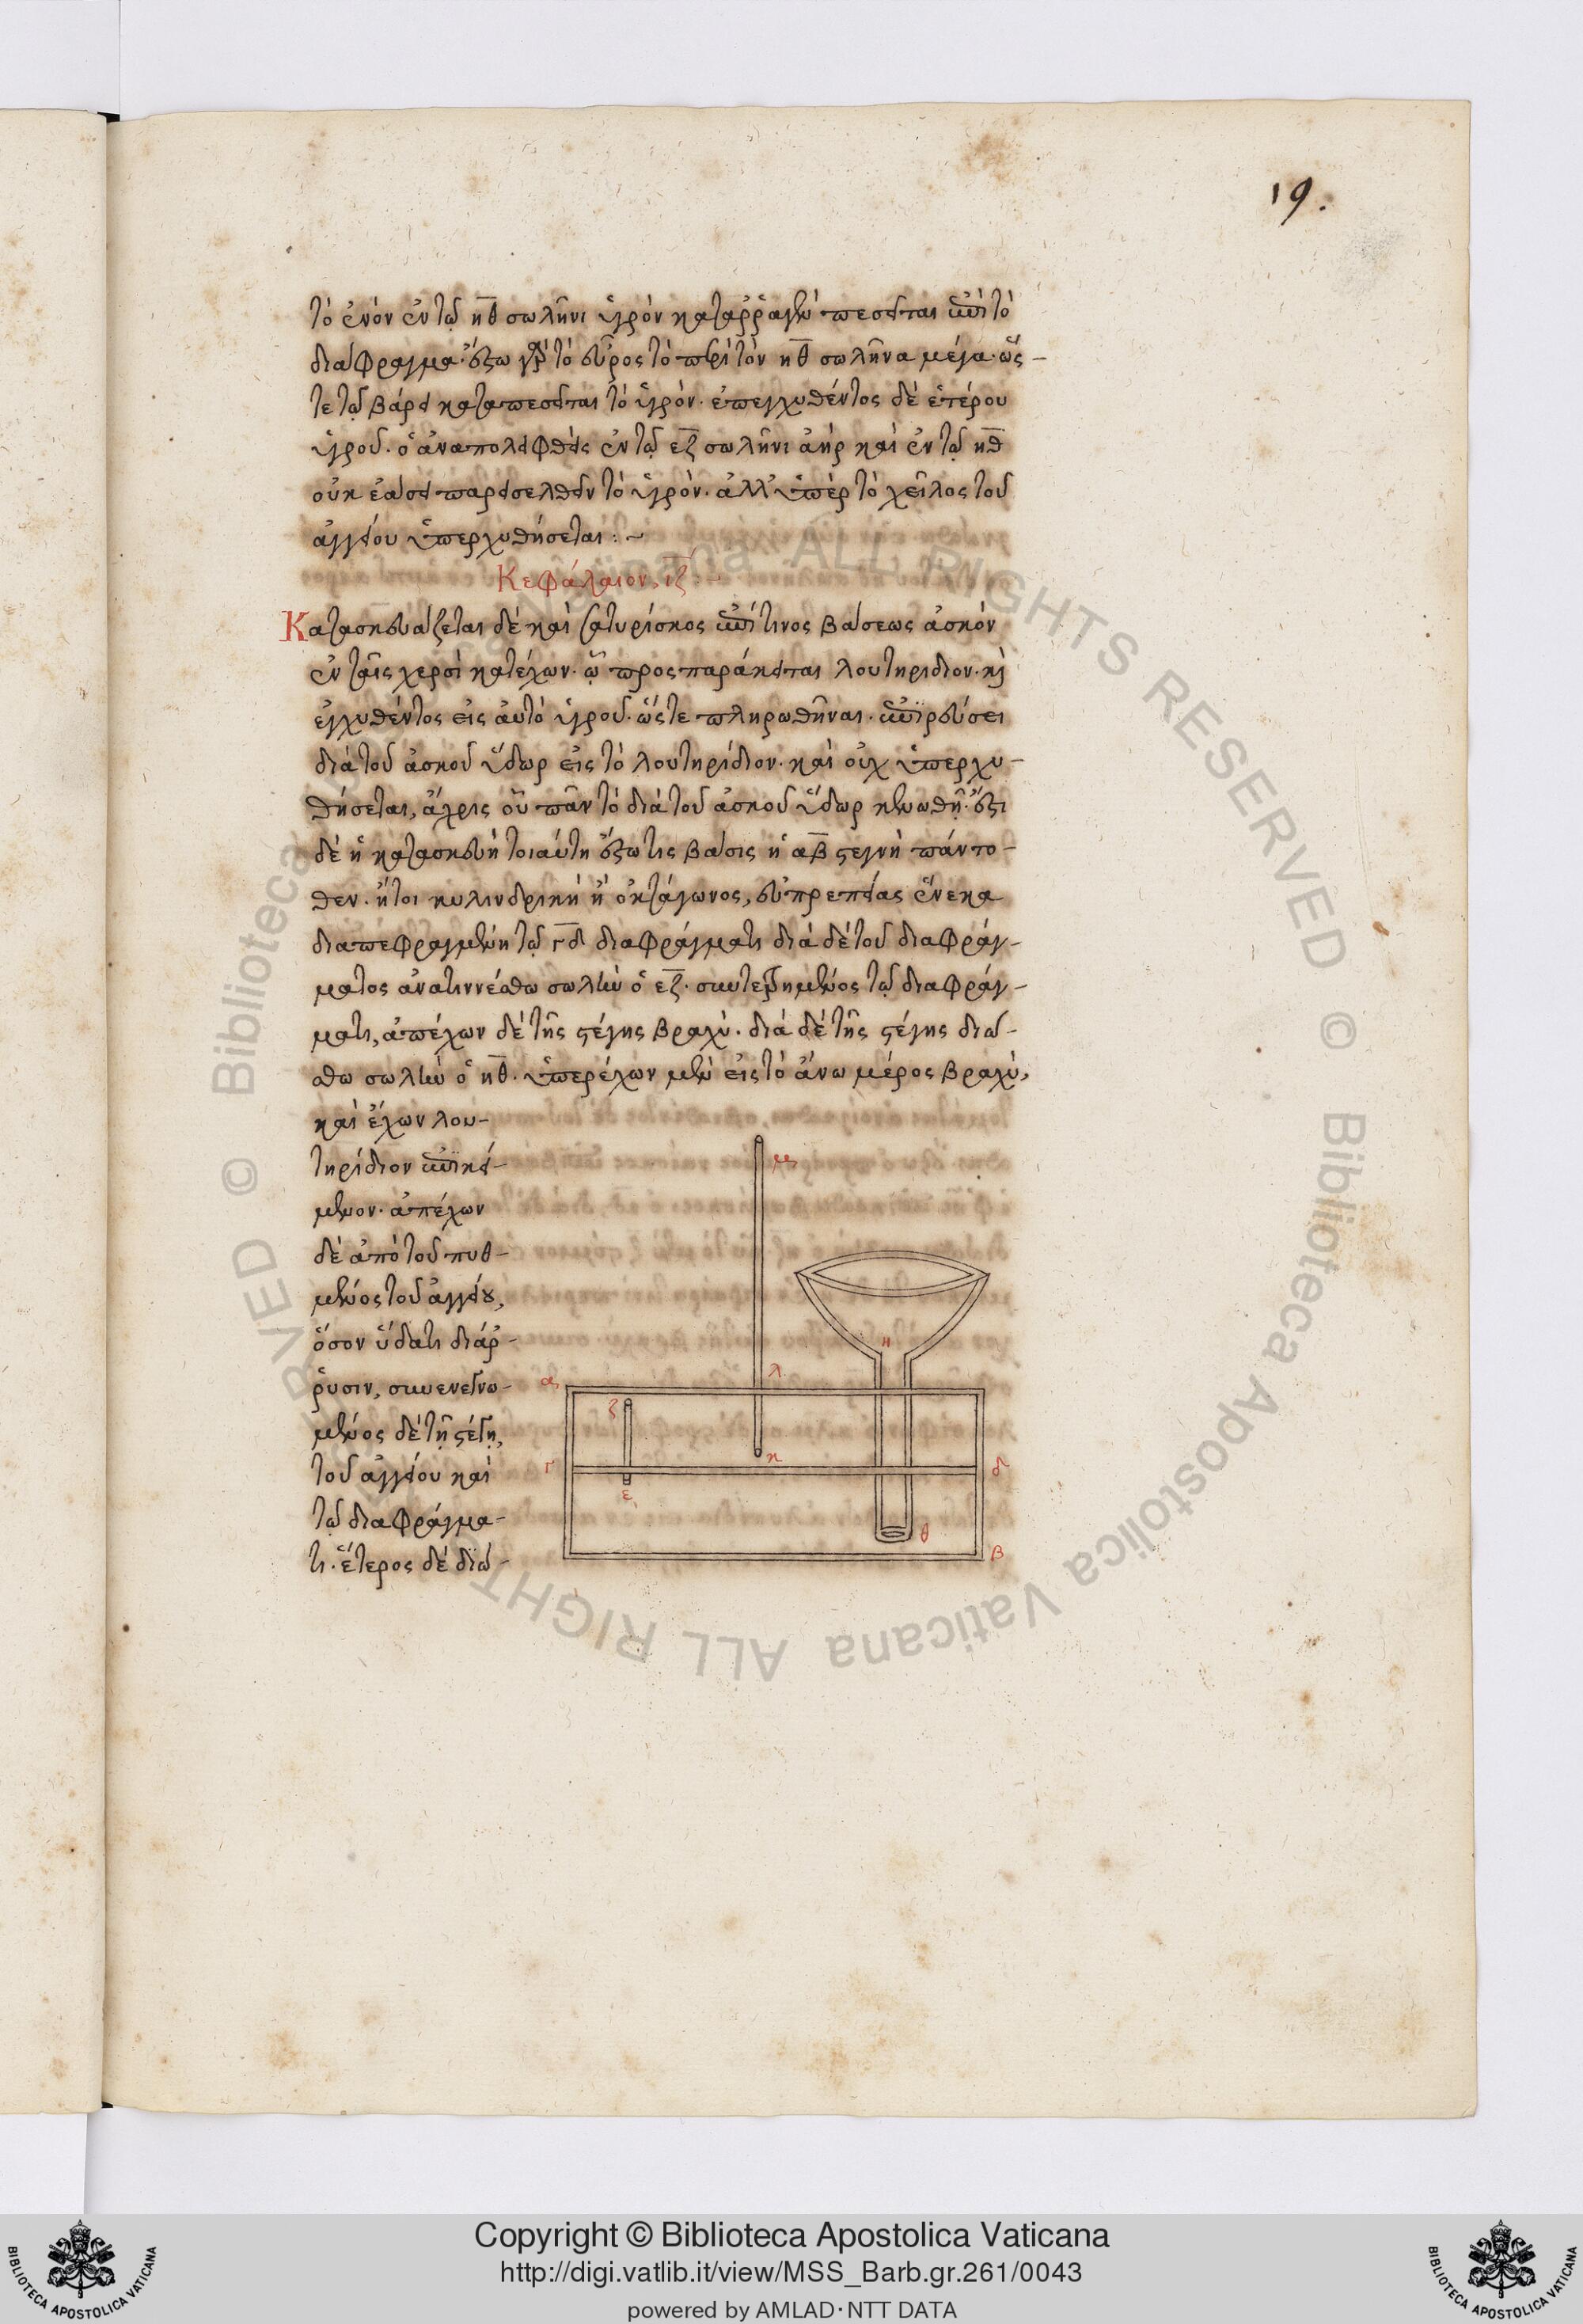 19.
τὸ ἐνὸν ἐν τῷ ηθ σωλῆνι ὑγρὸν καταῤῥαγὲν πεσεῖται ἐπὶ τὸ
διάφραγμα· ἔστω γὰρ τὸ εὖρος τὸ περὶ τὸν ηθ σωλῆνα μέγα· ὥς-
τε τῷ βάρει καταπεσεῖται τὸ ὑγρὸν. ἐπεγχυθέντος δὲ ἑτέρου
ὑγροῦ. ὁ ἀναπολειφθεὶς ἐν τῷ εζ σωλῆνι ἀὴρ καὶ ἐν τῷ ηθ
οὐκ ἐάσει παρεισελθεῖν τὸ ὑγρὸν. ἀλλ' ὑπὲρ τὸ χεῖλος τοῦ
ἀγγείου ὑπερχυθήσεται :~
Κεφάλαιον, ιζ :~
Κατασκευάζεται δὲ καὶ σατυρίσκος ἐπί τινος βάσεως ἀσκὸν
ἐν ταῖς χερσὶ κατέχων. ᾧ προςπαράκειται λουτηριδιον. κὶ
ἐγχυθέντος εἰς αὐτὸ ὑγροῦ. ὥςτε πληρωθῆναι. ἐπιρεύσει
διὰ τοῦ ἀσκοῦ ὕδωρ εἰς τὸ λουτηρίδιον. καὶ οὐχ ὑπερχυ-
θήσεται, ἄχρις οὗ πᾶν τὸ διὰ τοῦ ἀσκοῦ ὕδωρ κενωθῇ. ἔστι
δὲ ἡ κατασκευὴ τοιαύτη ἔστω τις βάσις ἡ αβ στεγνὴ πάντο-
θεν. ἤτοι κυλινδρικὴ ἢ ὀκτάγωνος, εὐπρεπείας ἕνεκα
διαπεφραγμένη τῷ γδ διαφράγματι διὰ δὲ τοῦ διαφράγ-
ματος ἀνατεινέσθω σωλὴν ὁ εζ. συντετρημένος τῷ διαφράγ-
ματι, ἀπέχων δὲ τῆς στέγης βραχὺ. διὰ δὲ τῆς στέγης διώ-
σθω σωλὴν ὁ ηθ. ὑπερέχων μὲν εἰς τὸ ἄνω μέρος βραχὺ,
καὶ ἔχων λου-
τηρίδιον ἐπικεί-
μενον. ἀπέχων
δὲ ἀπὸ τοῦ πυθ-
μένος τοῦ ἀγγείου,
ὅσον ὕδατι διάῤ-
ῥυσιν, συνενεγνω-
μένος δὲ τῇ στέγῃ,
τοῦ ἀγγείου καὶ
τῷ διαφράγμα-
τι. ἕτερος δὲ διώ-
μ
η
α
λ
ζ
κ
γ
δ
ε
θ
β
Copyright © Biblioteca Apostolica Vaticana
http://digi.vatlib.it/view/MSS_Barb.gr.261/0043
powered by AMLAD·NTT DATA
BIBLIOTECA APOSTOLICA VATICANA
BIBLIOTECA APOSTOLICA VATICANA
© Biblioteca Apostolica Vaticana ALL RIGHTS RESERVED © Biblioteca Apostolica Vaticana ALL RIGHTS RESERVED